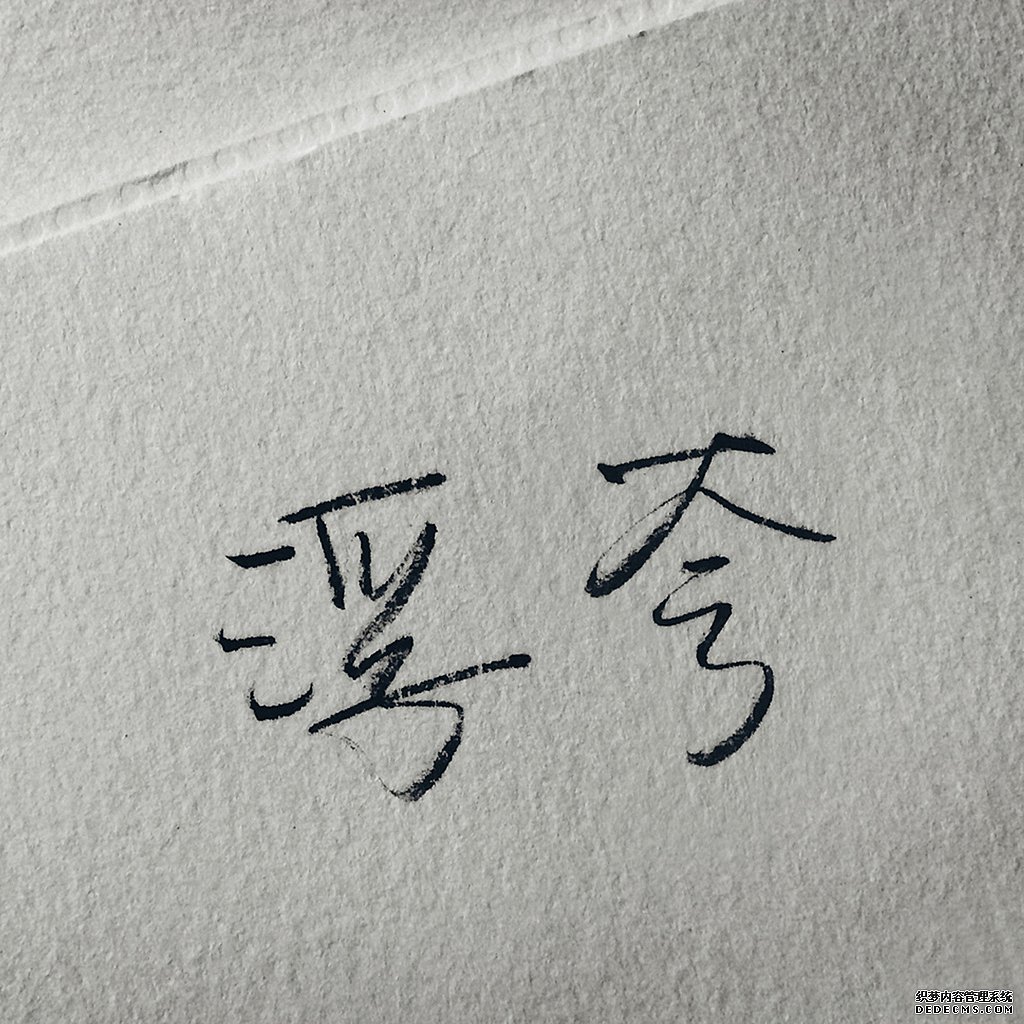 浮夸
织梦内容管理系统
DEDECMS.COM